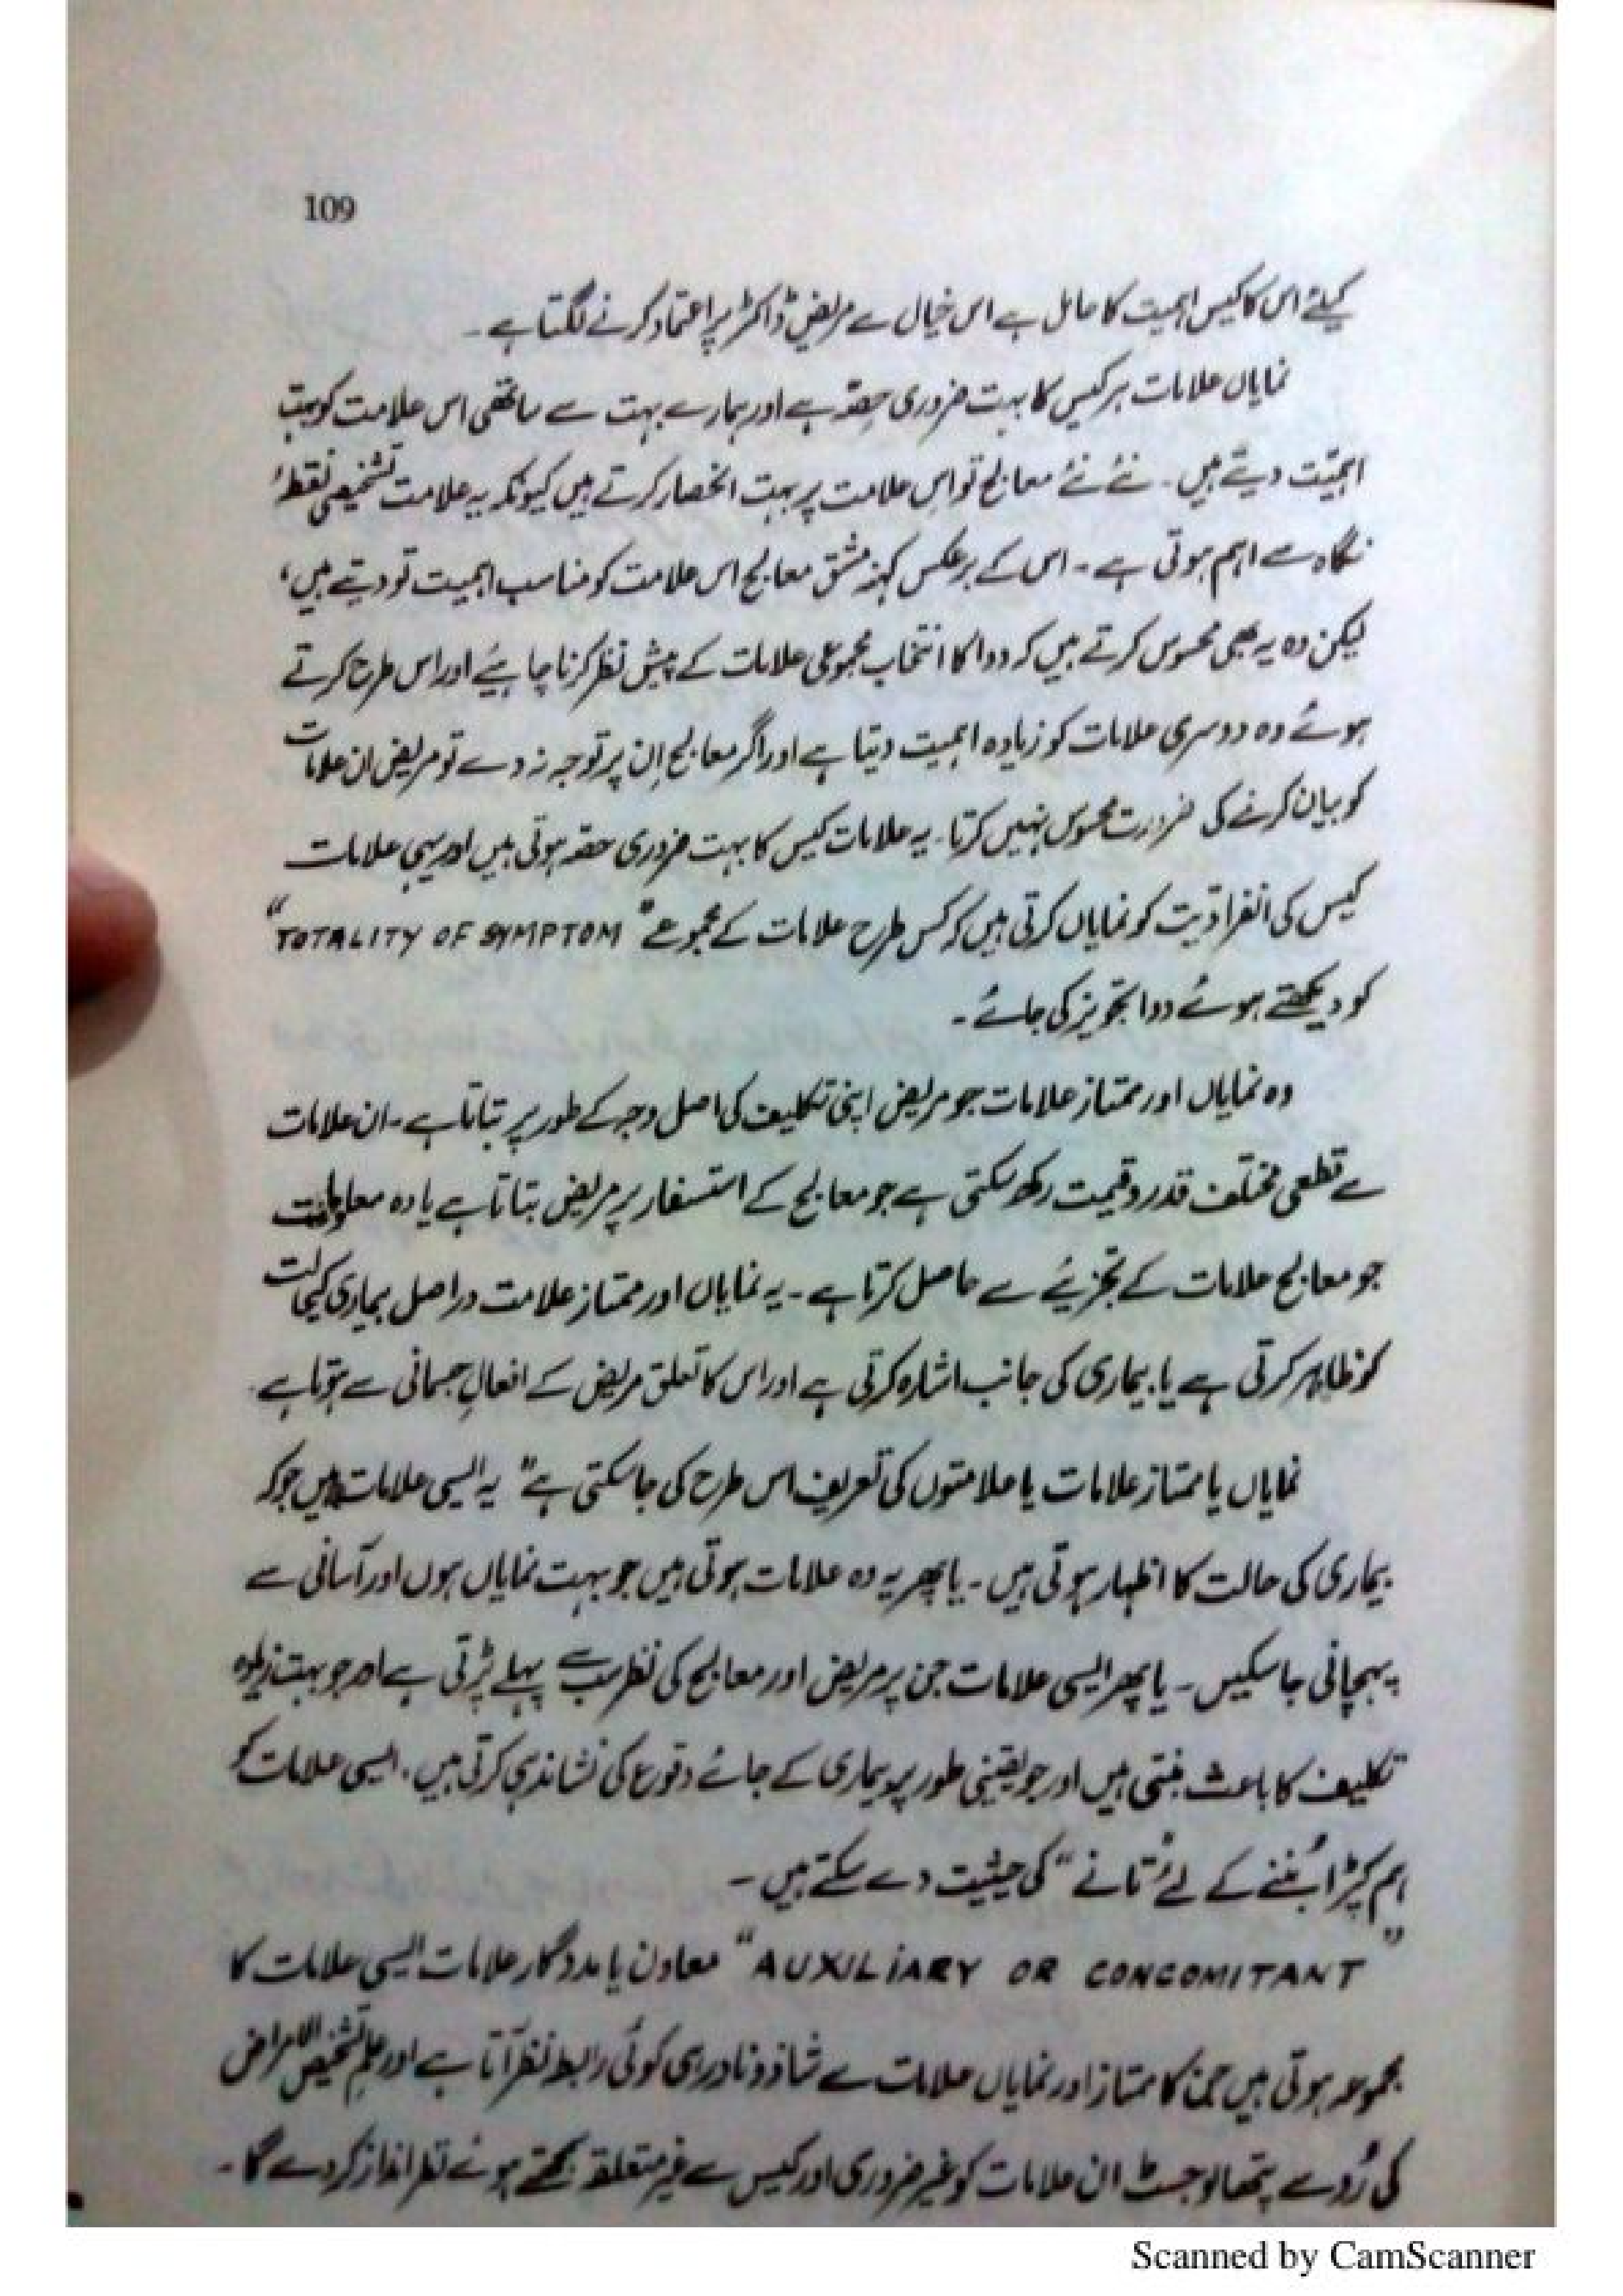 109
کیلئے اس کا کیس اہمیت کا حامل ہے اس خیال سے مریض ڈاکٹر پر اعتماد کرنے لگتا ہے ۔
نمایاں علامات ہر کیس کا بہت ضروری حصّہ ہے اور ہمارے بہت سے ساتھی اس علامت کو بہت
اہمیّت دیتے ہیں ۔ نئے نئے معالج تو اس علامت پر بہت انحصار کرتے ہیں کیونکہ یہ علامت تشخیصی نقطۂ
نگاہ سے اہم ہوتی ہے ۔ اس کے برعکس کہنہ مشق معالج اس علامت کو مناسب اہمیت تو دیتے ہیں،
لیکن وہ یہ بھی محسوس کرتے ہیں کہ دوا کا انتخاب مجموعی علامات کے پیش نظر کرنا چاہیئے اور اس طرح کرتے
ہوئے وہ دوسری علامات کو زیادہ اہمیت دیتا ہے اور اگر معالج اِن پر توجہ نہ دے تو مریض ان علامات
کو بیان کرنے کی ضرورت محسوس نہیں کرتا ۔ یہ علامات کیس کا بہت ضروری حصّہ ہوتی ہیں اور یہی علامات
کیس کی انفرادیت کو نمایاں کرتی ہیں کہ کس طرح علامات کے مجموعے "TOTALITY OF SYMPTOM"
کو دیکھتے ہوئے دوا تجویز کی جائے ۔
وہ نمایاں اور ممتاز علامات جو مریض اپنی تکلیف کی اصل وجہ کے طور پر بتاتا ہے ۔ ان علامات
سے قطعی مختلف قدر و قیمت رکھ سکتی ہے جو معالج کے استفسار پر مریض بتاتا ہے یا وہ معلومات
جو معالج علامات کے تجزیئے سے حاصل کرتا ہے ۔ یہ نمایاں اور ممتاز علامت دراصل بیماری کی حالت
کو ظاہر کرتی ہے یا بیماری کی جانب اشارہ کرتی ہے اور اس کا تعلق مریض کے افعالِ جسمانی سے ہوتا ہے ۔
نمایاں یا ممتاز علامات یا علامتوں کی تعریف اس طرح کی جا سکتی ہے " یہ ایسی علامات ہیں جو کہ
بیماری کی حالت کا اظہار ہوتی ہیں ۔ یا پھر یہ وہ علامات ہوتی ہیں جو بہت نمایاں ہوں اور آسانی سے
پہچانی جا سکیں ۔ یا پھر ایسی علامات جن پر مریض اور معالج کی نظر سب سے پہلے پڑتی ہے اور جو بہت زیادہ
تکلیف کا باعث بنتی ہیں اور جو یقینی طور پر بیماری کے جائے وقوع کی نشاندہی کرتی ہیں ۔ ایسی علامات کو
ہم کپڑا بُننے کے لئے "تانے" کی حیثیت دے سکتے ہیں ۔
"AUXILIARY OR CONCOMITANT" معاون یا مددگار علامات ایسی علامات کا
مجموعہ ہوتی ہیں جن کا ممتاز اور نمایاں علامات سے شاذ و نادر ہی کوئی رابطہ نظر آتا ہے اور علمِ تشخیص الامراض
کی رُو سے پتھالوجسٹ ان علامات کو غیر ضروری اور کیس سے غیر متعلقہ سمجھتے ہوئے نظر انداز کر دے گا ۔
Scanned by CamScanner